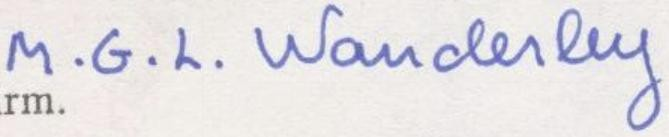 M.G.L. Wanderley
arm.